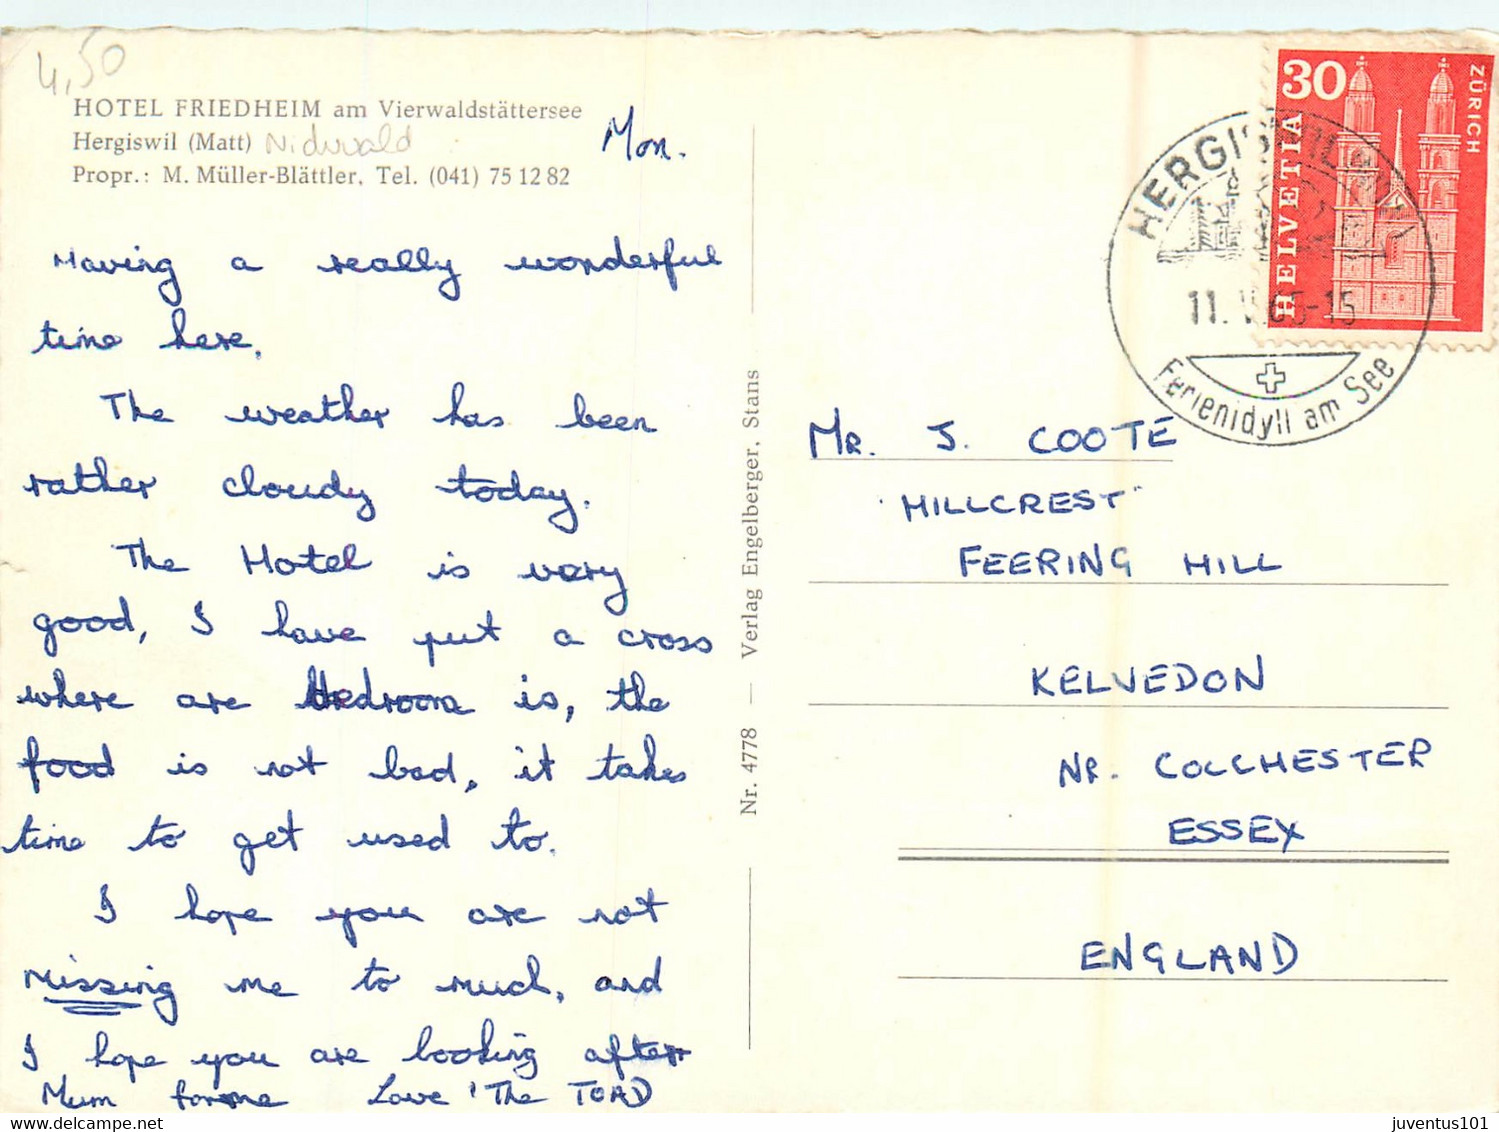 4,50
HOTEL FRIEDHEIM am Vierwaldstättersee
Hergiswil (Matt) Nidwald
Propr.: M. Müller-Blättler, Tel. (041) 75 12 82
Mon.
Having a really wonderful
time here.
The weather has been
rather cloudy today.
The Hotel is very
good, I have put a cross
where are bedroom is, the
food is not bad, it takes
time to get used to.
I hope you are not
missing me to much, and
I hope you are looking after
Mum for me Love 'The TOAD
Nr. 4778 — Verlag Engelberger, Stans
30
HELVETIA
ZÜRICH
HERGISWIL
11. V. 65-15
Ferienidyll am See
MR. J. COOTE
'HILLCREST'
FEERING HILL
KELVEDON
NR. COLCHESTER
ESSEX
ENGLAND
juventus101